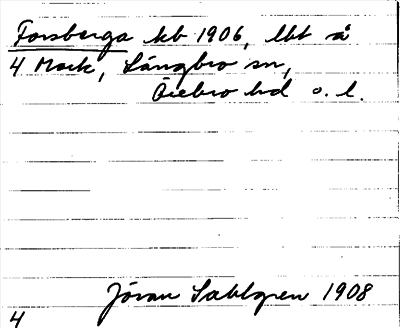 Forsberga kb 1906, lht å
4 Mark, Längbro sn,
Örebro hd o. l.
Jöran Sahlgren 1908
4